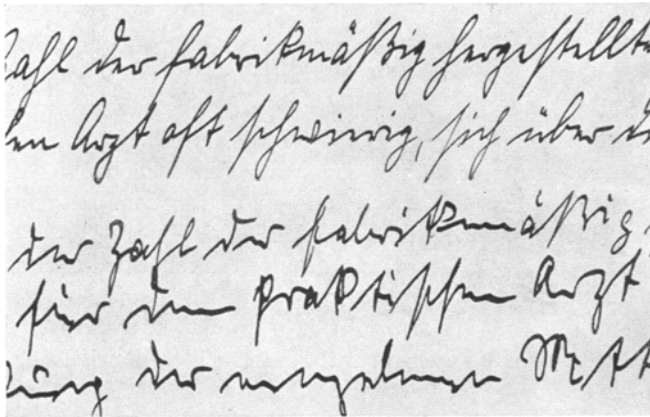 Zahl der fabrikmäßig hergestellte
den Arzt oft schwierig, sich über d
der Zahl der fabrikmäßig
für den praktischen Arzt
der einzelnen Mitt